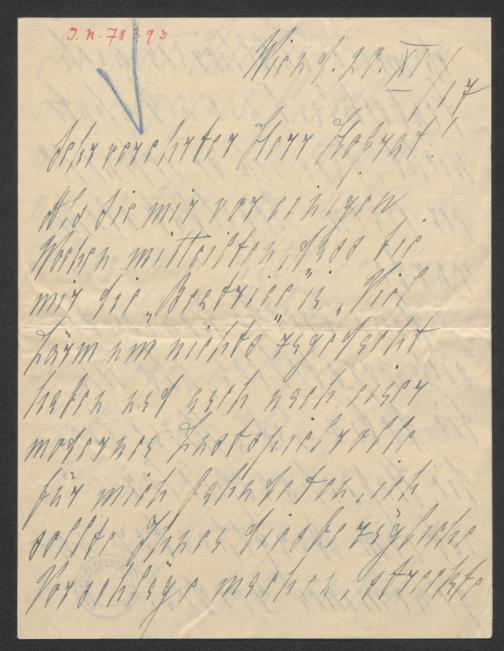 J. N. 78393
Wien d. 20. XI / 17
Sehr verehrter Herr Hofrat!
Als Sie mir vor einigen
Wochen mitteilten, dass Sie
mir die „Beatrice" i. „Viel
Lärm um nichts" zugedacht
haben und auch nach einer
modernen Lustspielrolle
für mich fahndeten, ich
sollte Ihnen diesbezügliche
Vorschläge machen,